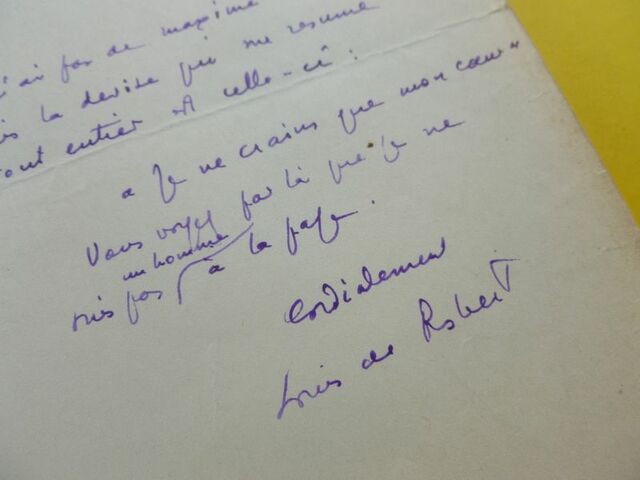 'ai pas de maxime
is la devise qui me résume
out entier est celle-ci :
« Je ne crains que mon cœur »
Vous voyez par là que je ne
un homme
suis pas à la page.
Cordialement
Louis de Robert